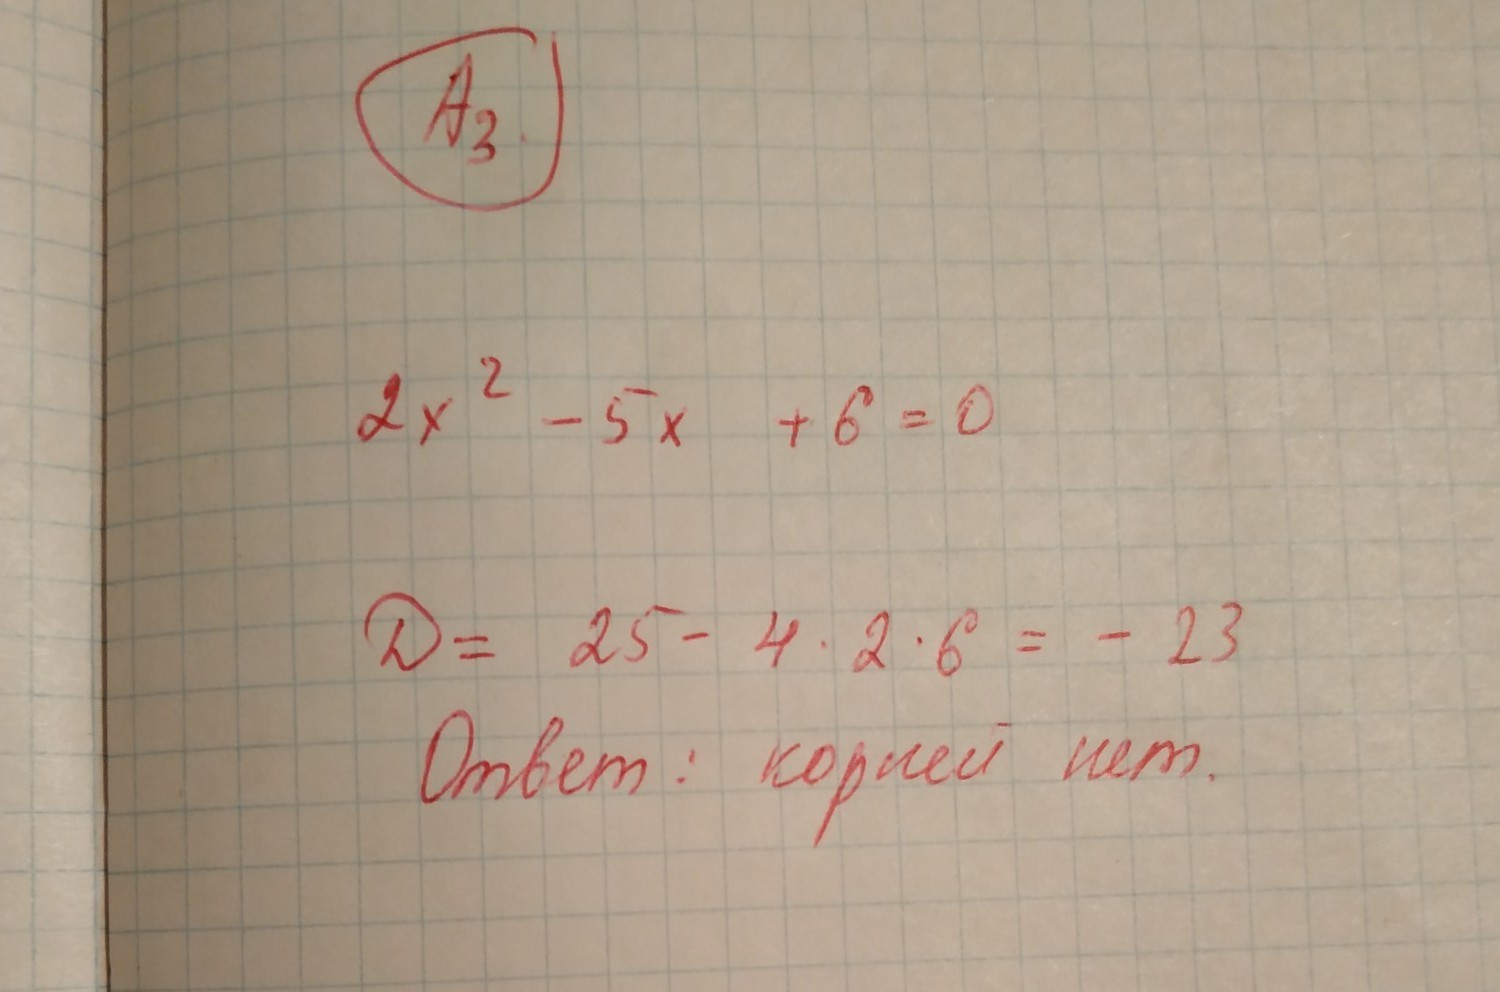 A₃.
2x² - 5x + 6 = 0
D = 25 - 4 · 2 · 6 = - 23
Ответ: корней нет.